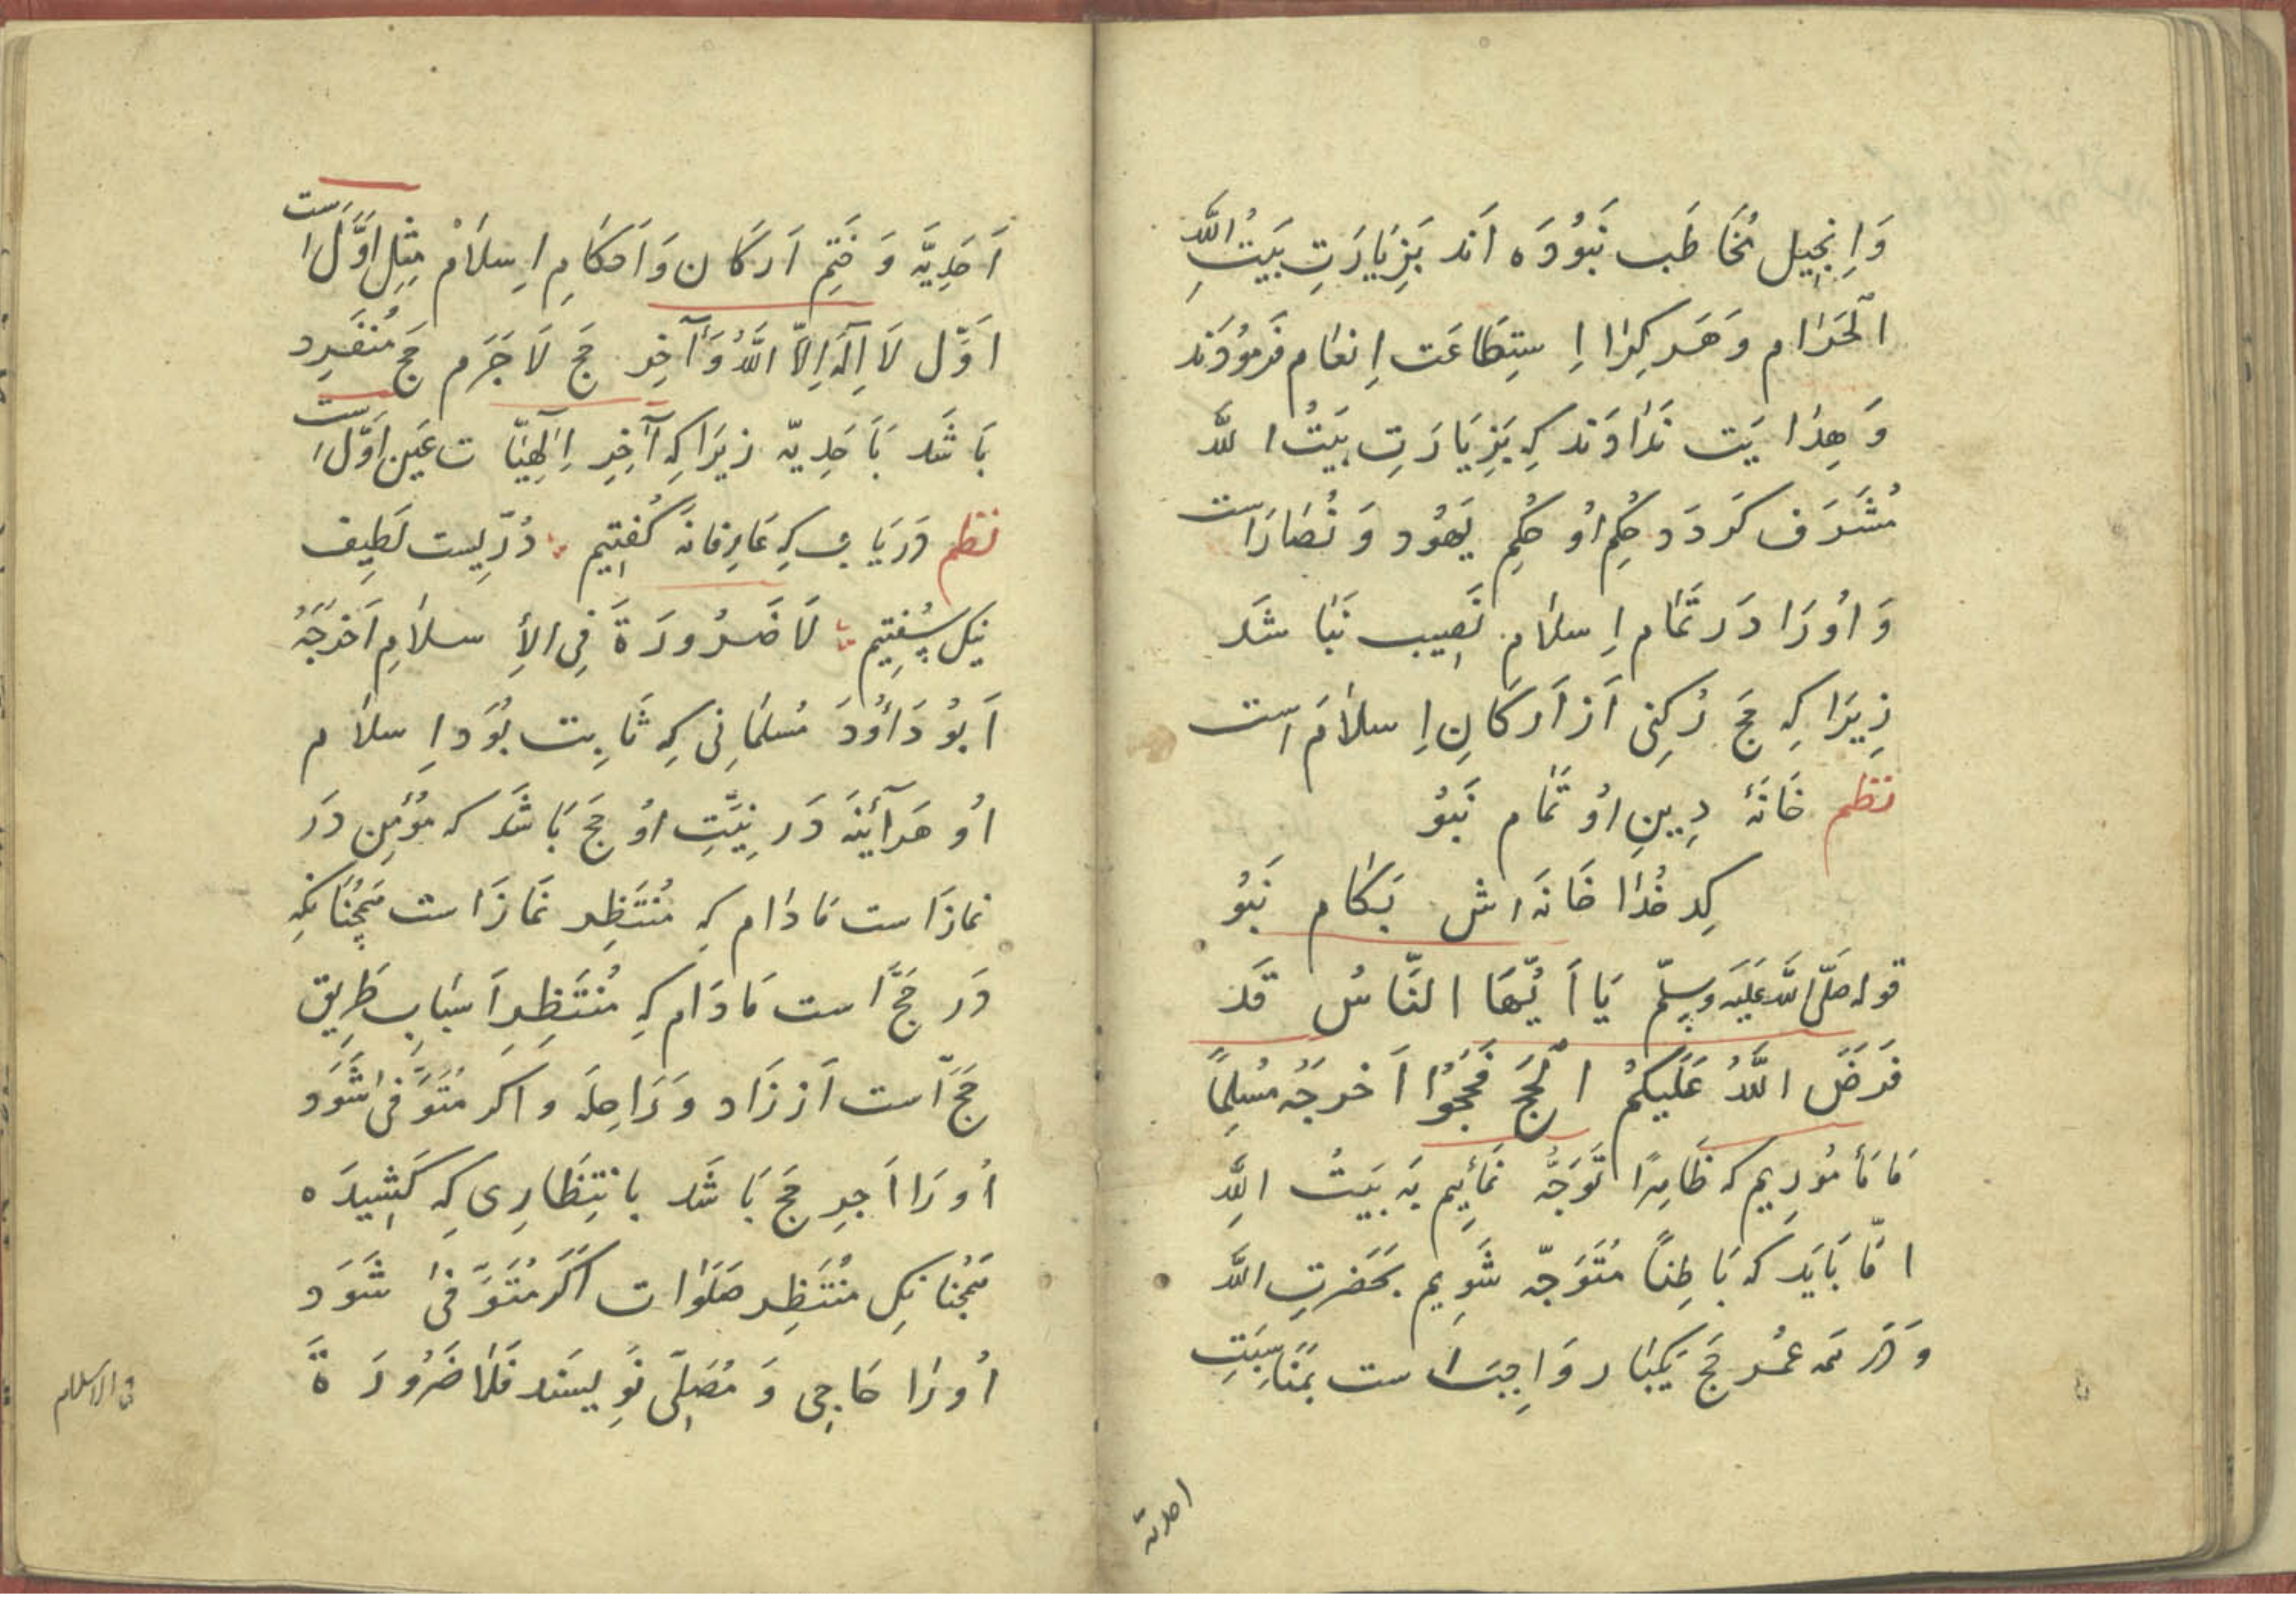 وَاِنجِیل مُخَاطَب نَبُوُدَه اَند بَزِیَارَتِ بَیتُ اللّٰهِ
الحَرَام وَهَر کِرَا اِستِطَاعَت اِنعَام فَرمُودَند
وَهِدَایَت نَدَاوَند کِه بَزِیَارَتِ بَیتُ اللّٰه
مُشَرَف کَردَد حُکمِ اُو حُکمِ یَهُود وَنُصَارَاست
وَاُورَا دَر تَمَام اِسلَام نَصِیب نَبَاشَد
زِیرَا کِه حَج رُکنِی اَز اَرکَانِ اِسلَام است
نظم خَانَهٔ دِینِ اُو تَمَام نَبُو
کِدخُدَا خَانَه اش بَکَام نَبُو
قوله صَلَّی اللّٰه عَلَیَه وَسلّم یَا اَیُّهَا النَّاسُ قَد
فَرَضَ اللّٰهُ عَلَیکُمُ الحَجَ فَحُجُّوا اَخرجَهُ مُسلِمٌ
مَا مَأمُورِیم که ظَاهِرًا تَوَجُّه نَمَائِیم بَه بَیتُ اللّٰهِ
امَّا بَایَد که بَاطِنًا مُتَوَجّه شَوِیم بحَضرتِ اللّٰه
وَدَر همَه عُمر حَج یَکبَار وَاجِبَ است بمُنَاسِبَتِ
احدیة
اَحَدِیَّه وَخَتِمِ اَرکَان وَاَحکَامِ اِسلَام مِثِلِ اَوَّل است
اَوَّل لَا اِلٰهَ اِلَّا اللّٰهُ وَآخِر حَج لَاجَرَم حَج مُنفَرِد
بَاشَد بَاَحَدِیّه زیرَا کِه آخِرِ اِلٰهِیّات عَین اَوَّل است
نظم دَریَاب کِه عَارِفَانَه کُفتِیم ؞ دُرّیست لَطِیف
نِیک سُفتِیم ؞ لَا ضَرُورَةَ فِی الأِسلَامِ اَخرَجَهُ
اَبُو دَاوُدَ مُسلمَانِی کِه ثَابِت بُوَد اِسلَام
اُو هَرآیَنَه دَر نِیَّتِ اُو حَج بَاشَد که مؤمِن دَر
نمازَاست مَادَام که مُنتَظِر نَمَازَاست هَمچُنَانکِه
دَر حَجَّ است مَادَام کِه مُنتَظِر اَسبَابِ طَرِیقِ
حَجَّ است اَز زَاد وَرَاحِلَه وَاَکر مُتَوَفّی شَوَد
اُورَا اَجرِ حَج بَاشَد بانتِظَارِی کِه کَشِیدَه
هَمچُنانکِ مُنتَظِر صَلَوَات اَکَر مُتَوَفّی شَوَد
اُورَا حَاجِی وَمُصَلِّی نَوِیسَند فَلَا ضَرُورَةَ
فی الاسلام